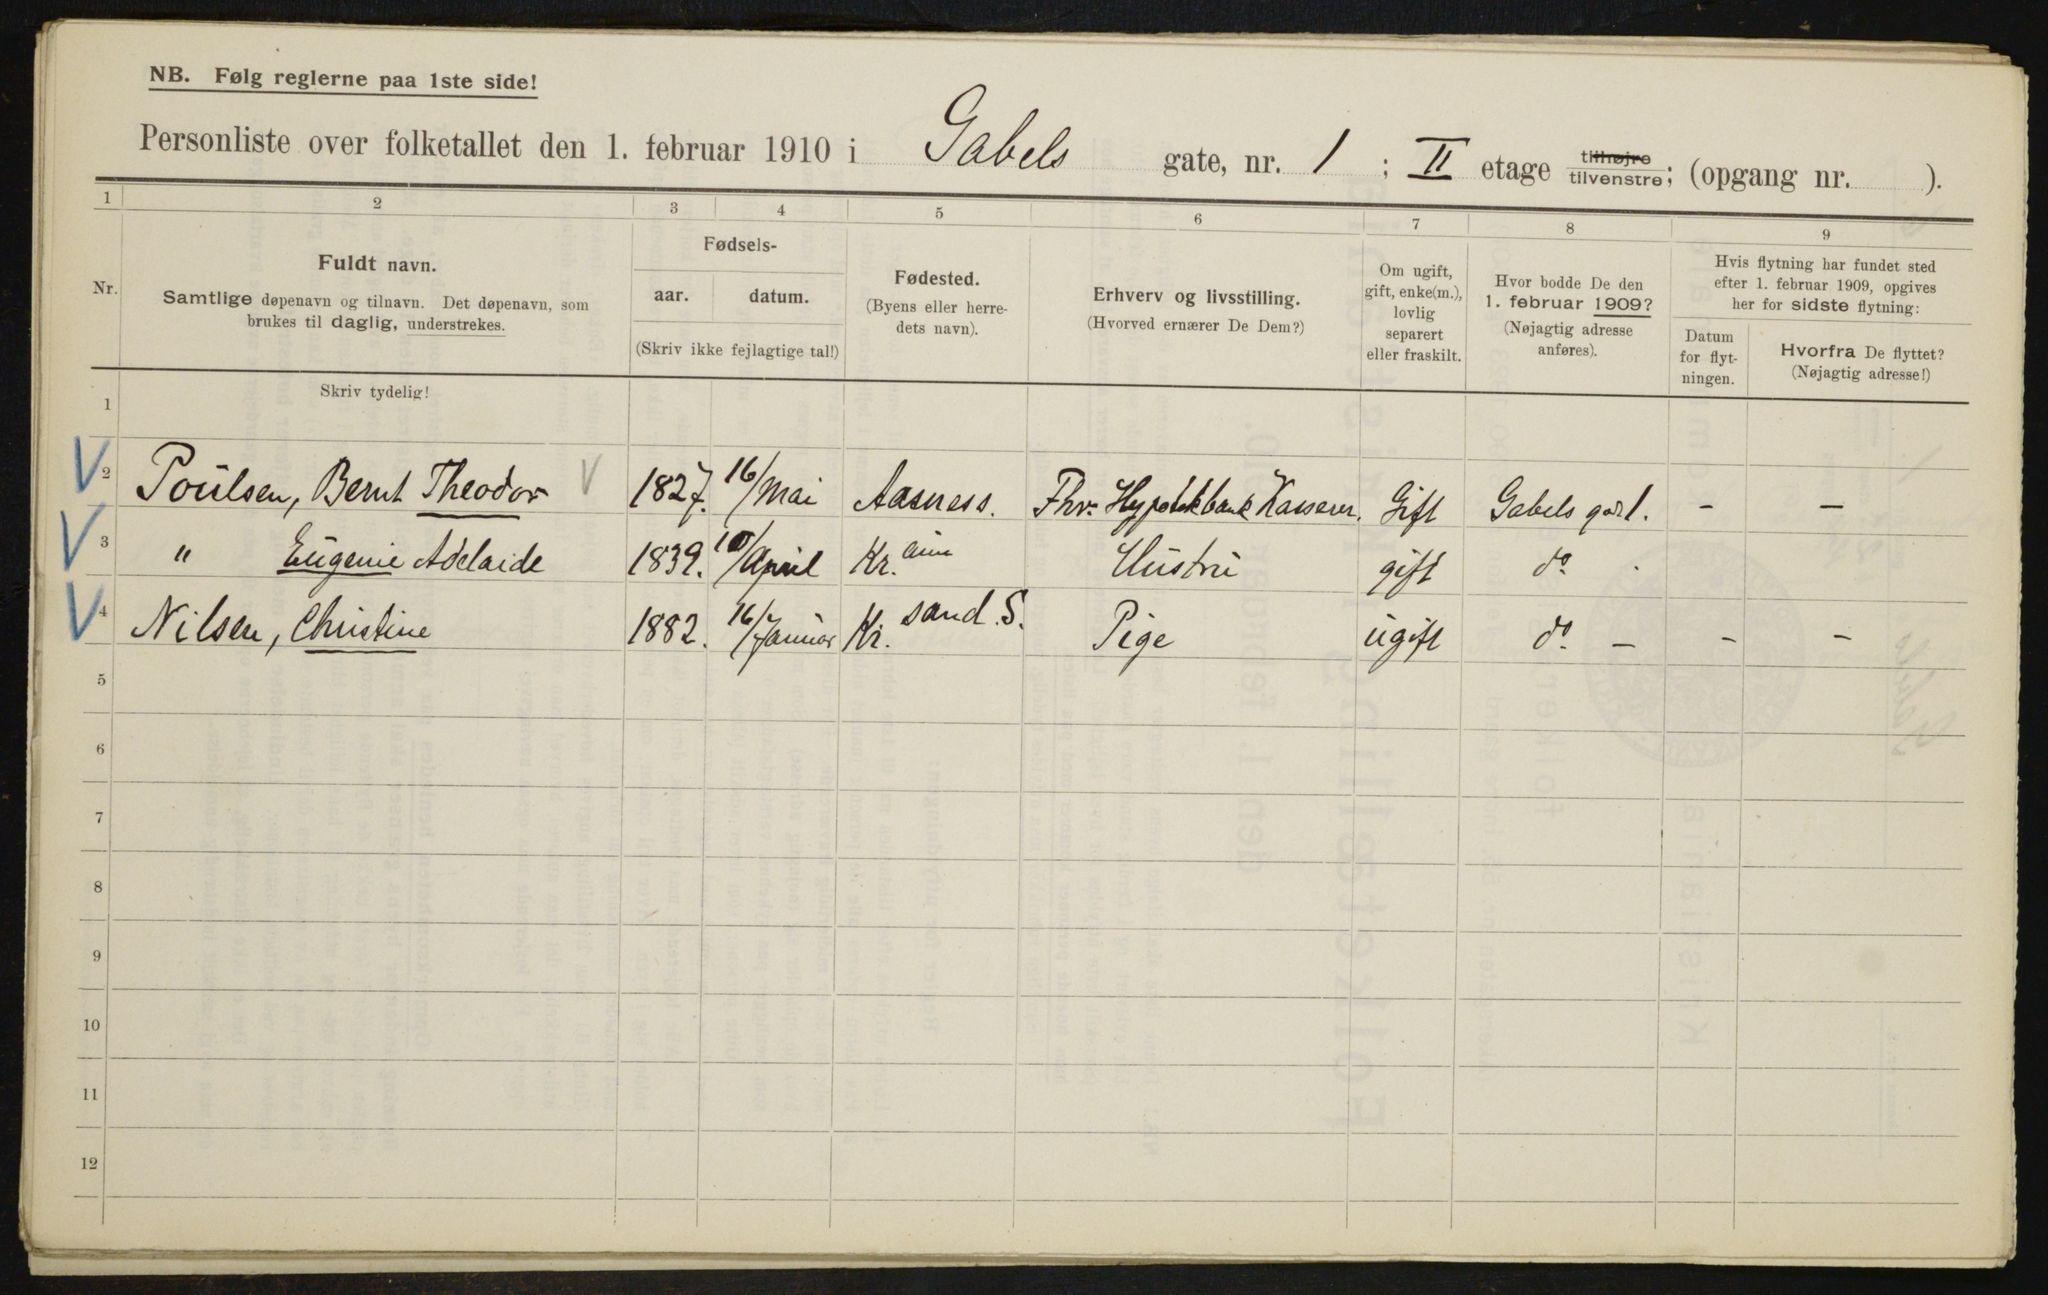 NB. Følg reglerne paa 1ste side!
Personliste over folketallet den 1. februar 1910 i Gabels gate, nr. 1 ; II etage tilhøjre tilvenstre; (opgang nr. ).
1 2 3 4 5 6 7 8 9
Nr.
Fuldt navn.
Samtlige døpenavn og tilnavn. Det døpenavn, som
brukes til daglig, understrekes.
Fødsels-
aar. datum.
(Skriv ikke fejlagtige tal!)
Fødested.
(Byens eller herre-
dets navn).
Erhverv og livsstilling.
(Hvorved ernærer De Dem?)
Om ugift,
gift, enke(m.),
lovlig
separert
eller fraskilt.
Hvor bodde De den
1. februar 1909?
(Nøjagtig adresse
anføres).
Hvis flytning har fundet sted
efter 1. februar 1909, opgives
her for sidste flytning:
Datum
for flyt-
ningen.
Hvorfra De flyttet?
(Nøjagtig adresse!)
Skriv tydelig!
1
2 Poulsen, Bernt Theodor 1827. 16/Mai Fhv. Hypothekbank Kasserer. Gift Gabels gd 1. – –
3 " Eugenie Adelaide 1839. 10/April Kr. Hustru gift do.
4 Nilsen, Christine 1882. 16/Januar Kr. sand. S. Pige ugift do. – – –
5
6
7
8
9
10
11
12